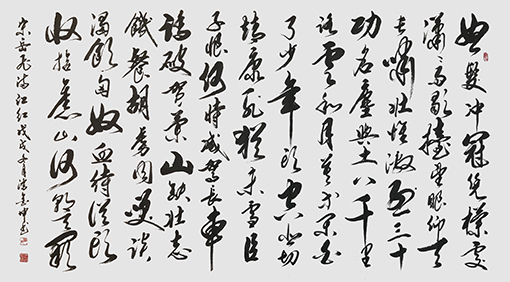 怒髮冲冠凭欄處
瀟瀟雨歇擡望眼仰天
長嘯壯懷激烈三十
功名塵與土八千里
路雲和月莫等閑白
了少年頭空悲切
靖康恥猶未雪臣
子恨何時滅駕長車
踏破賀蘭山缺壯志
饑餐胡虜肉笑談
渴飲匈奴血待從頭
收拾舊山河朝天闕
宋岳飛滿江紅戊戌冬月